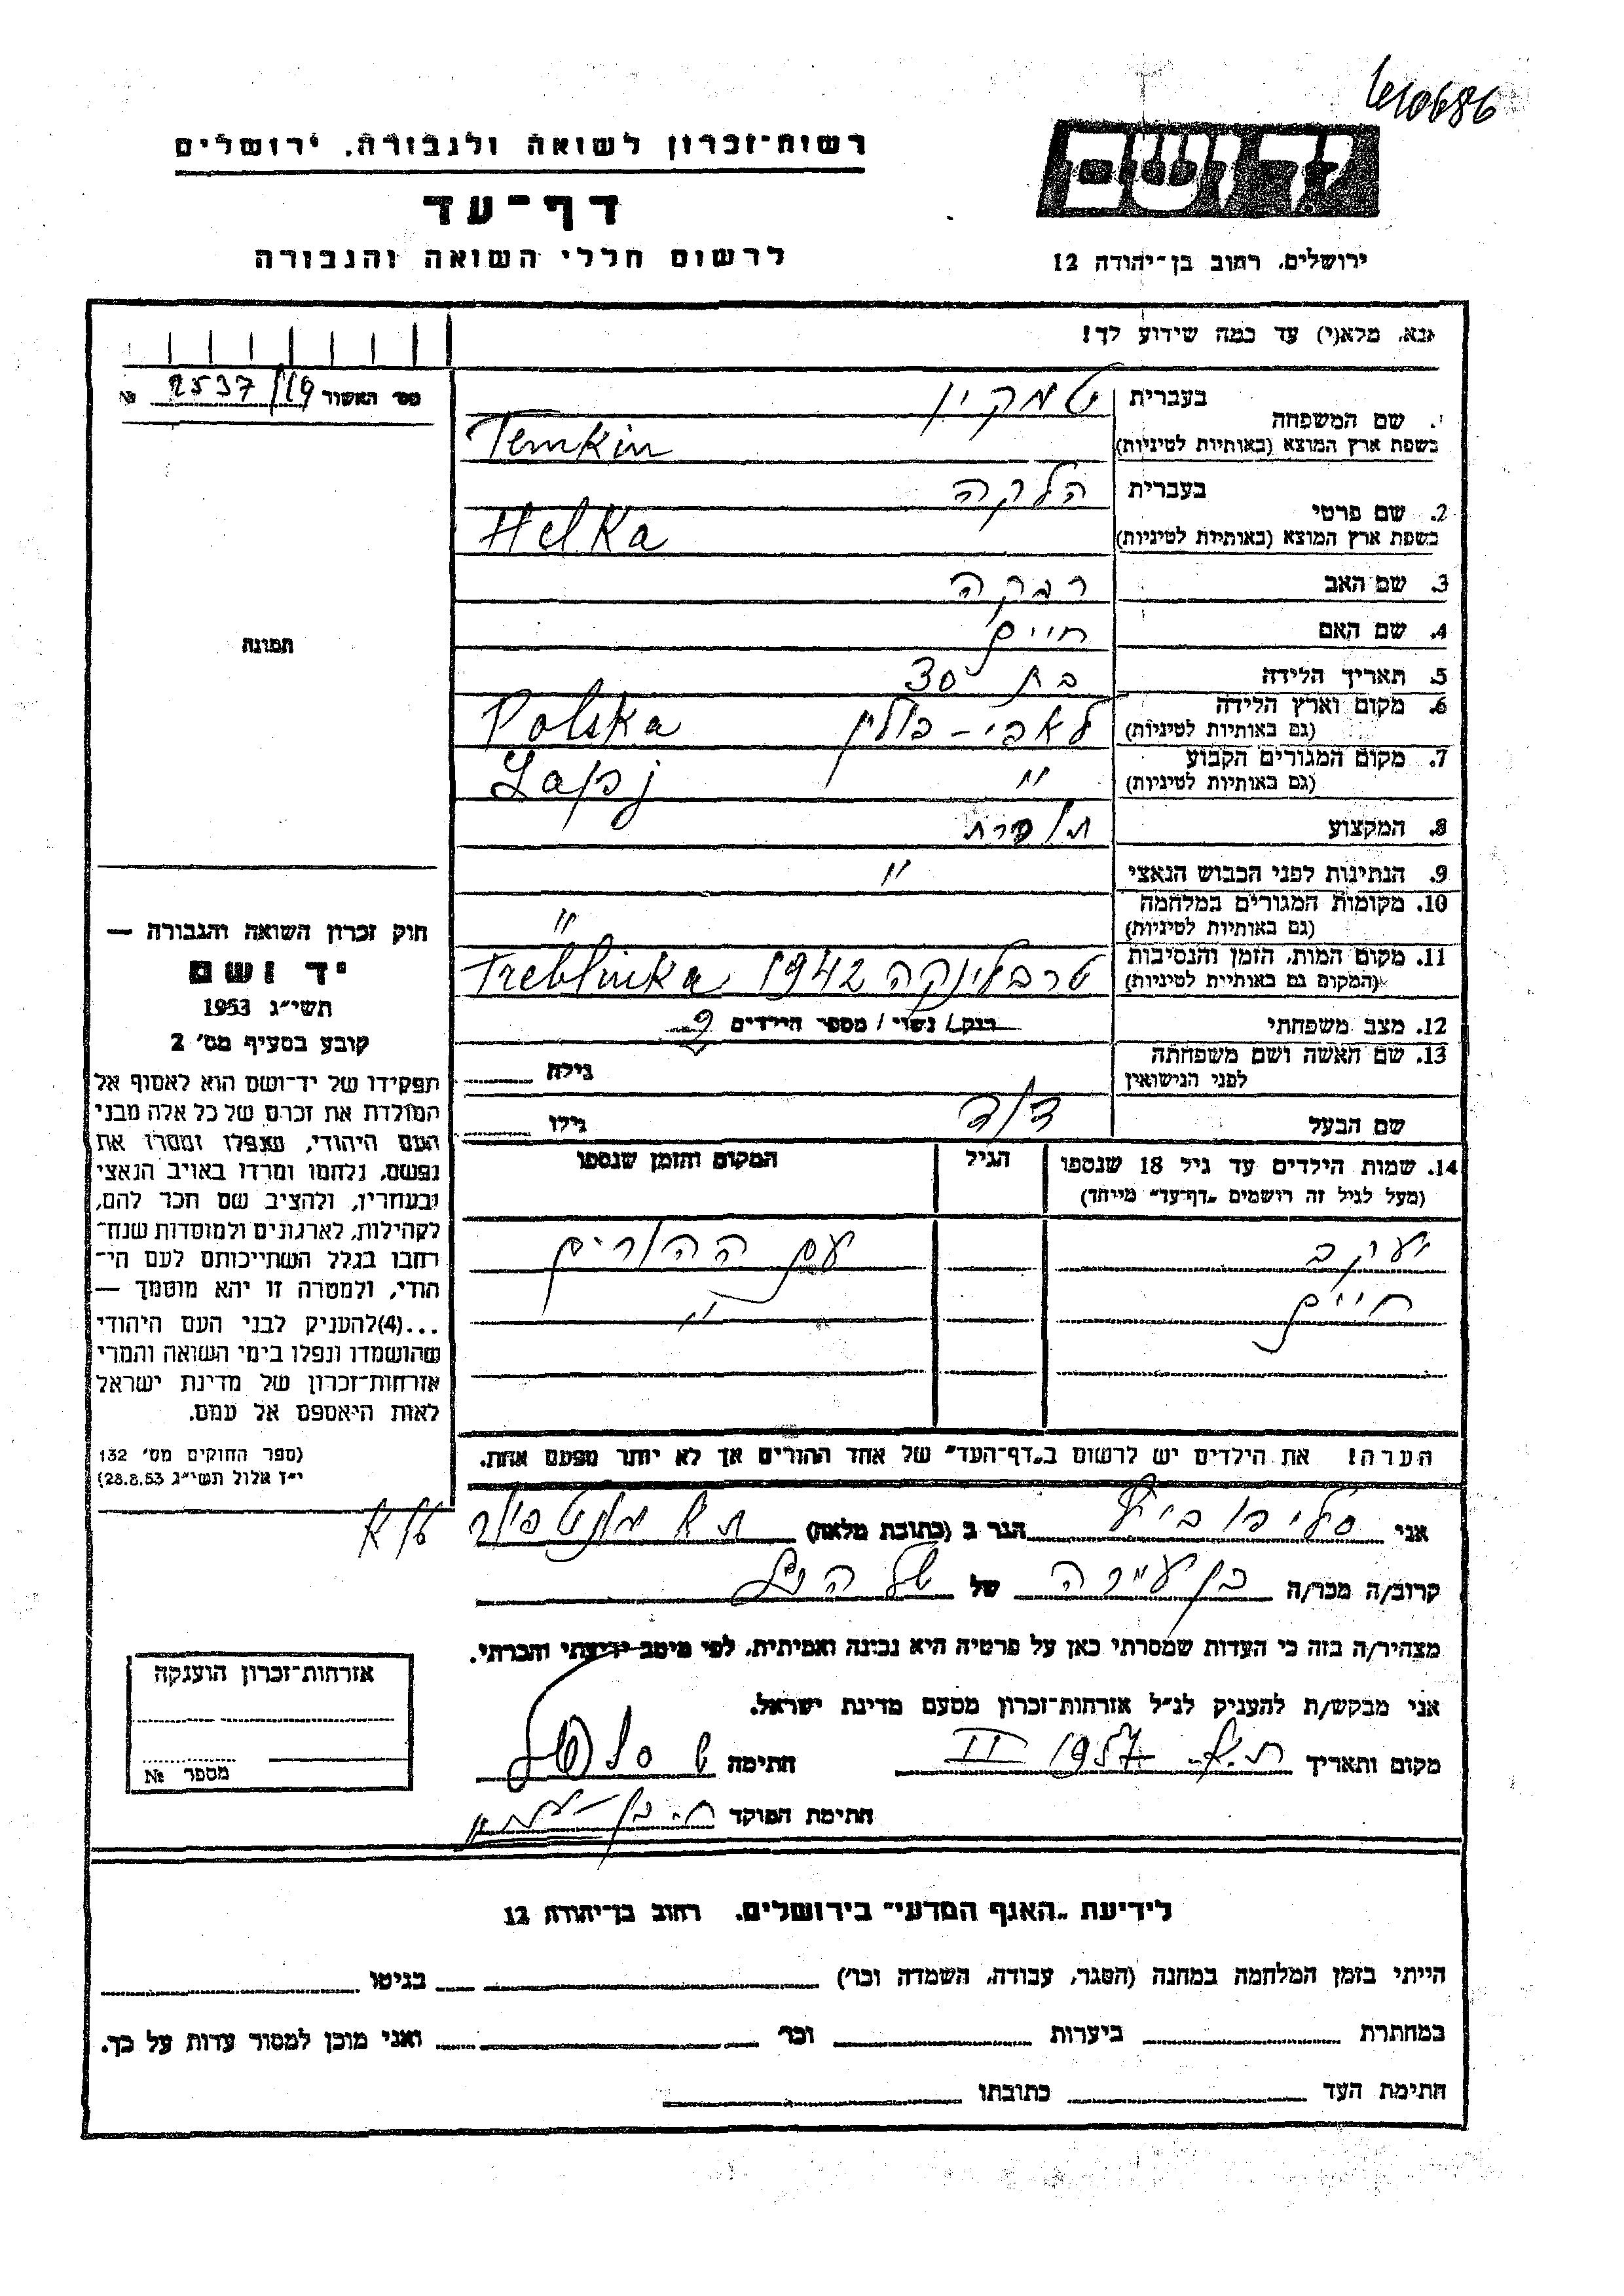 רשות-זכרון לשואה ולגבורה, ירושלים
דף-עד
לרשום חללי השואה והגבורה
יד ושם
ירושלים, רחוב בן-יהודה 12
נא, מלא(י) עד כמה שידוע לך!
מס' האשור 2537/19 №
1. שם המשפחה בעברית טמקין
בשפת ארץ המוצא (באותיות לטיניות) Temkin
2. שם פרטי בעברית הלקה
בשפת ארץ המוצא (באותיות לטיניות) Helka
3. שם האב רבקה
4. שם האם חיים
5. תאריך הלידה בת 30
6. מקום וארץ הלידה (גם באותיות לטיניות) לאפי - פולין Polska
7. מקום המגורים הקבוע (גם באותיות לטיניות) " Łapy
8. המקצוע תופרת
9. הנתינות לפני הכבוש הנאצי "
10. מקומות המגורים במלחמה (גם באותיות לטיניות) "
11. מקום המות, הזמן והנסיבות (המקום גם באותיות לטיניות) טרבלינקה 1942 Treblinka
12. מצב משפחתי רווק / נשוי / מספר הילדים 2
13. שם האשה ושם משפחתה לפני הנישואין גילה
שם הבעל דוד גילו
14. שמות הילדים עד גיל 18 שנספו הגיל המקום והזמן שנספו
(מעל לגיל זה רושמים "דף-עד" מיוחד)
יעקב עם ההורים
חיים "
הערה! את הילדים יש לרשום ב"דף-העד" של אחד ההורים אך לא יותר מפעם אחת.
תמונה
חוק זכרון השואה והגבורה —
יד ושם
תשי"ג 1953
קובע בסעיף מס' 2
תפקידו של יד-ושם הוא לאסוף אל
המולדת את זכרם של כל אלה מבני
העם היהודי, שנפלו ומסרו את
נפשם, נלחמו ומרדו באויב הנאצי
ובעוזריו, ולהציב שם וזכר להם,
לקהילות, לארגונים ולמוסדות שנח-
רבו בגלל השתייכותם לעם הי-
הודי, ולמטרה זו יהא מוסמך —
...(4)להעניק לבני העם היהודי
שהושמדו ונפלו בימי השואה והמרי
אזרחות-זכרון של מדינת ישראל
לאות היאספם אל עמם.
(ספר החוקים מס' 132
י"ז אלול תשי"ג 28.8.53)
אני הגר ב (כתובת מלאה) ת"א
קרוב/ה מכר/ה בן עירה של
מצהיר/ה בזה כי העדות שמסרתי כאן על פרטיה היא נכונה ואמיתית, לפי מיטב ידיעתי והכרתי.
אני מבקש/ת להעניק לנ"ל אזרחות-זכרון מטעם מדינת ישראל.
מקום ותאריך ת"א 1957 II חתימה
חתימת הפוקד
אזרחות-זכרון הוענקה
מספר №
לידיעת "האגף המדעי" בירושלים, רחוב בן-יהודה 12
הייתי בזמן המלחמה במחנה (הסגר, עבודה, השמדה וכו') בגיטו
במחתרת ביערות וכו' ואני מוכן למסור עדות על כך.
חתימת העד כתובתו